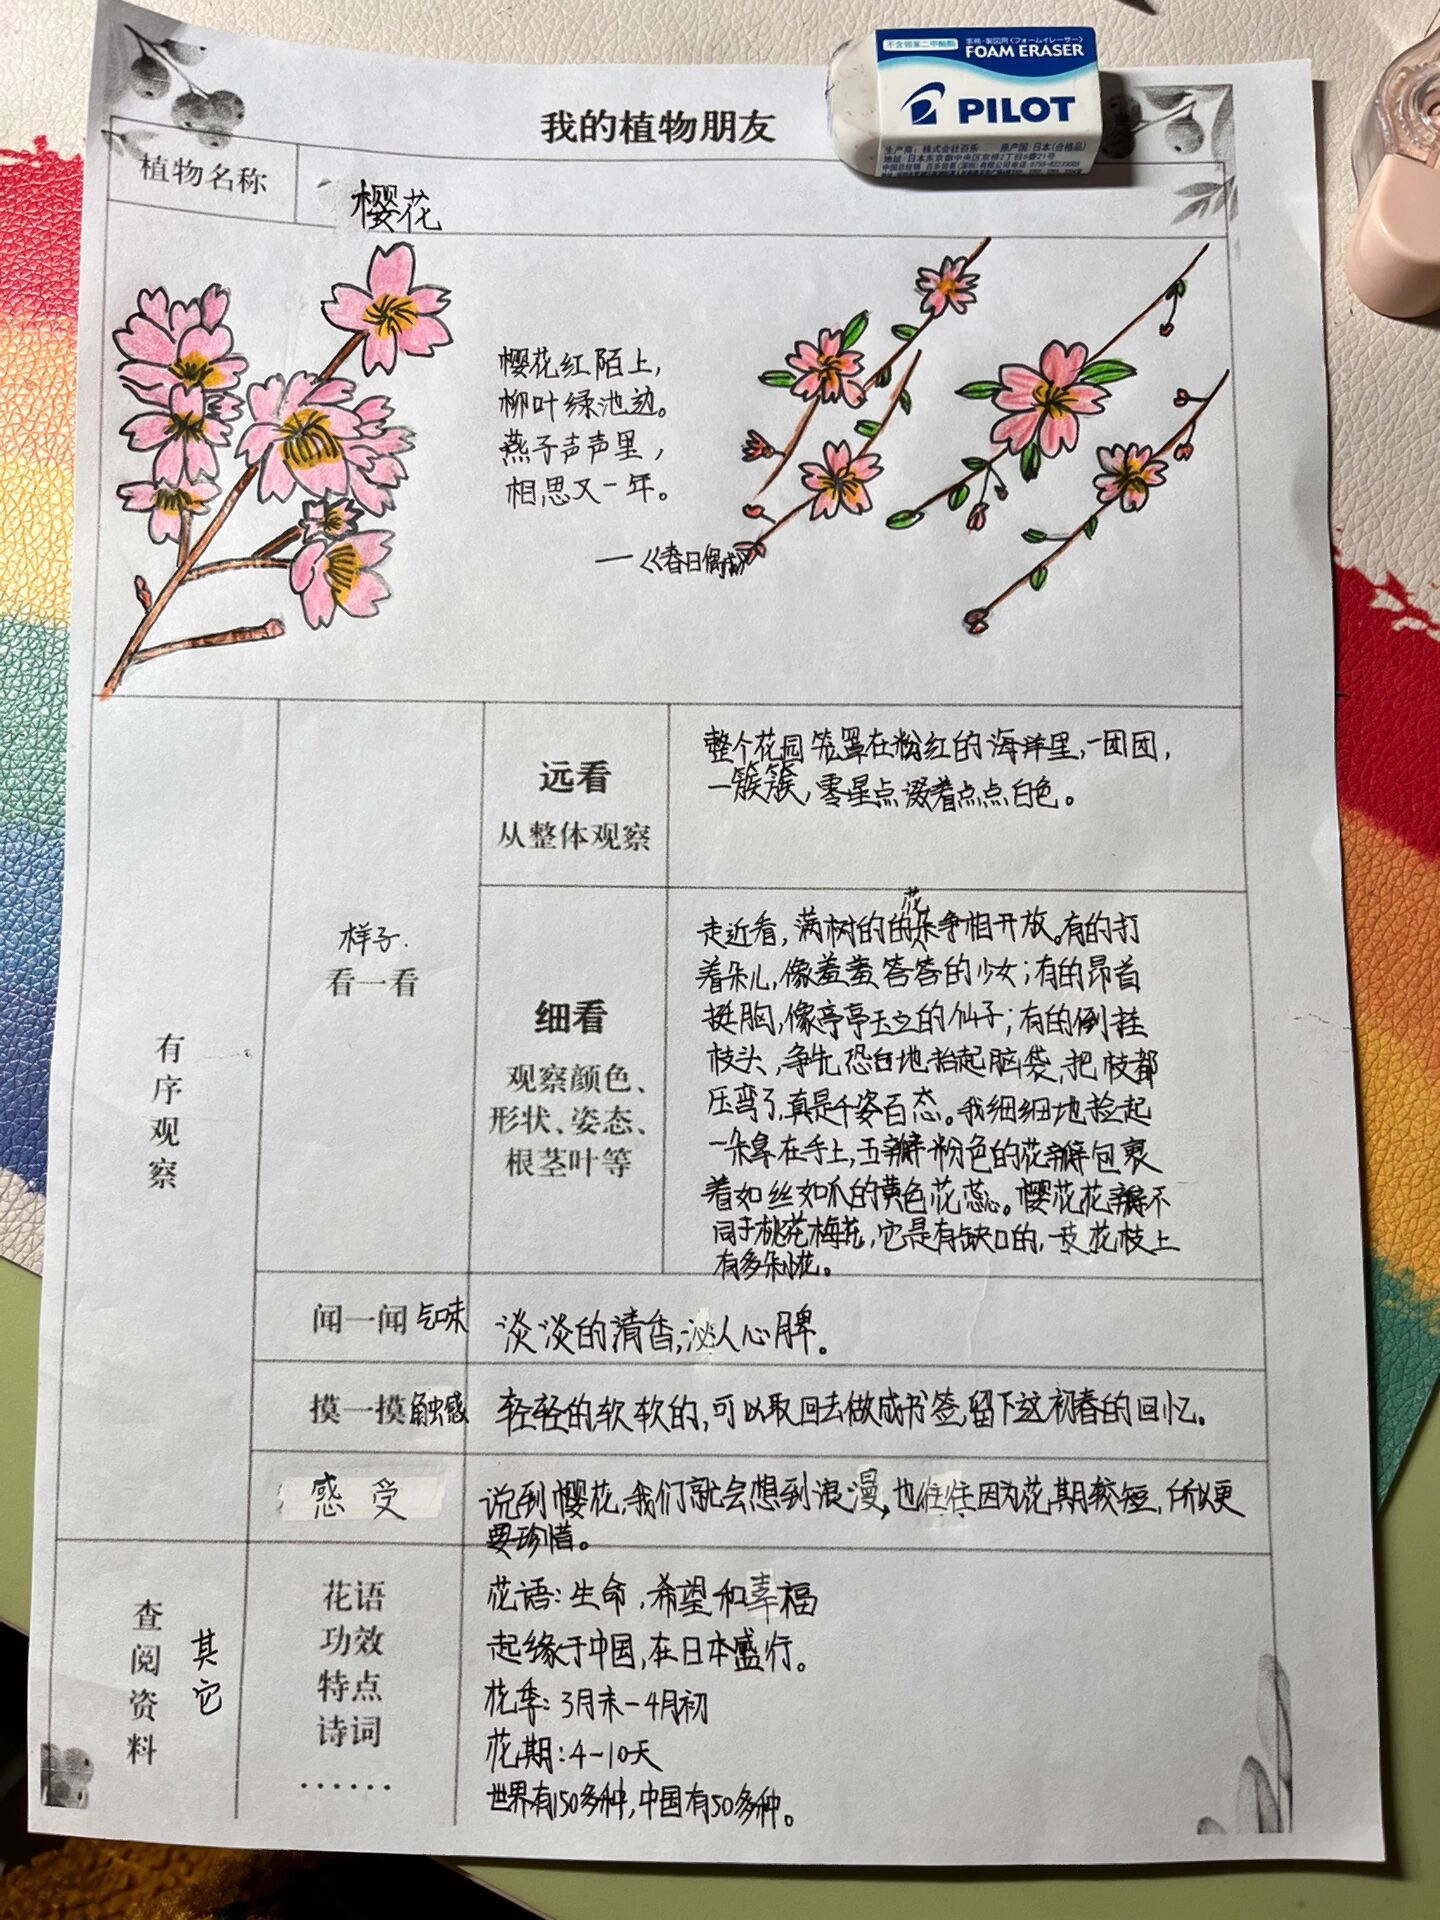 不含邻苯二甲酸酯
FOAM ERASER
PILOT
生产商：株式会社百乐 原产国：日本（合格品）
地址：日本东京都中央区京桥2丁目6番21号
我的植物朋友
植物名称
樱花
樱花红陌上，
柳叶绿池边。
燕子声声里，
相思又一年。
——《春日偶成》
有序观察
样子.
看一看
远看
从整体观察
整个花园笼罩在粉红的海洋里，一团团，
一簇簇，零星点缀着点点白色。
细看
观察颜色、
形状、姿态、
根茎叶等
走近看，满树的的花朵争相开放。有的打
着朵儿，像羞羞答答的少女；有的昂首
挺胸，像亭亭玉立的仙子；有的倒挂
枝头，争先恐白地抬起脑袋，把枝都
压弯了，真是千姿百态。我细细地捡起
一朵拿在手上，五瓣粉色的花瓣包裹
着如丝如爪的黄色花蕊。樱花花瓣不
同于桃花梅花，它是有缺口的，一支花枝上
有多朵小花。
闻一闻 气味
淡淡的清香，沁人心脾。
摸一摸 触感
轻轻的软软的，可以取回去做成书签，留下这初春的回忆。
感受
说到樱花，我们就会想到浪漫，也往往因为花期较短，所以更
要珍惜。
查阅资料
其它
花语
功效
特点
诗词
……
花语：生命，希望和幸福
起缘于中国，在日本盛行。
花季：3月末－4月初
花期：4－10天
世界有150多种，中国有50多种。